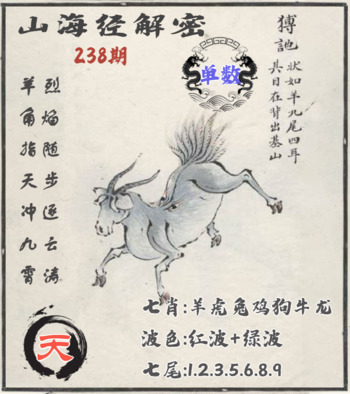 山海经解密
238期
单数
猼訑
状如羊九尾四耳
其目在背出基山
烈焰随步逐云涛
羊角指天冲九霄
天
七肖:羊虎兔鸡狗牛龙
波色:红波+绿波
七尾:1.2.3.5.6.8.9